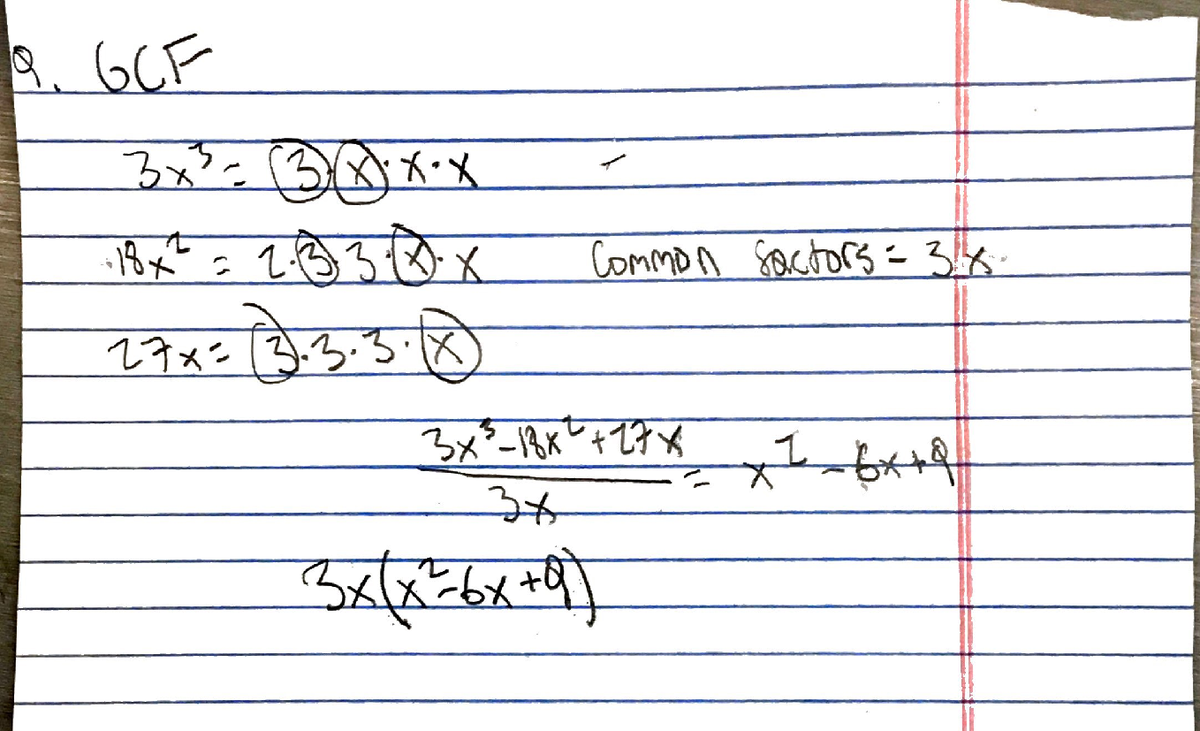 9. GCF
3x³ = 3·x·x·x
18x² = 2·3·3·x·x Common factors = 3x
27x = 3·3·3·x
3x³-18x²+27x
/ 3x = x²-6x+9
3x(x²-6x+9)